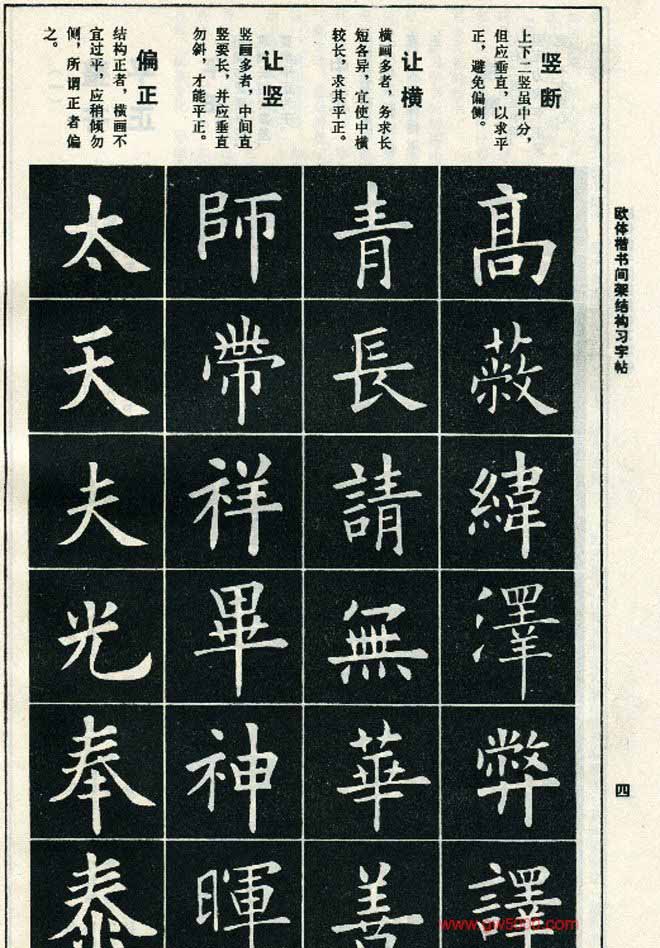 欧体楷书间架结构习字帖
四
竖断
上下二竖虽中分，
但应垂直，以求平
正，避免偏侧。
髙蔽緯澤弊譯
让横
横画多者，务求长
短各异，宜使中横
较长，求其平正。
青長請無華善
让竖
竖画多者，中间直
竖要长，并应垂直
勿斜，才能平正。
師帶祥畢神暉
偏正
结构正者，横画不
宜过平，应稍倾勿
侧，所谓正者偏
之。
太天夫光奉泰